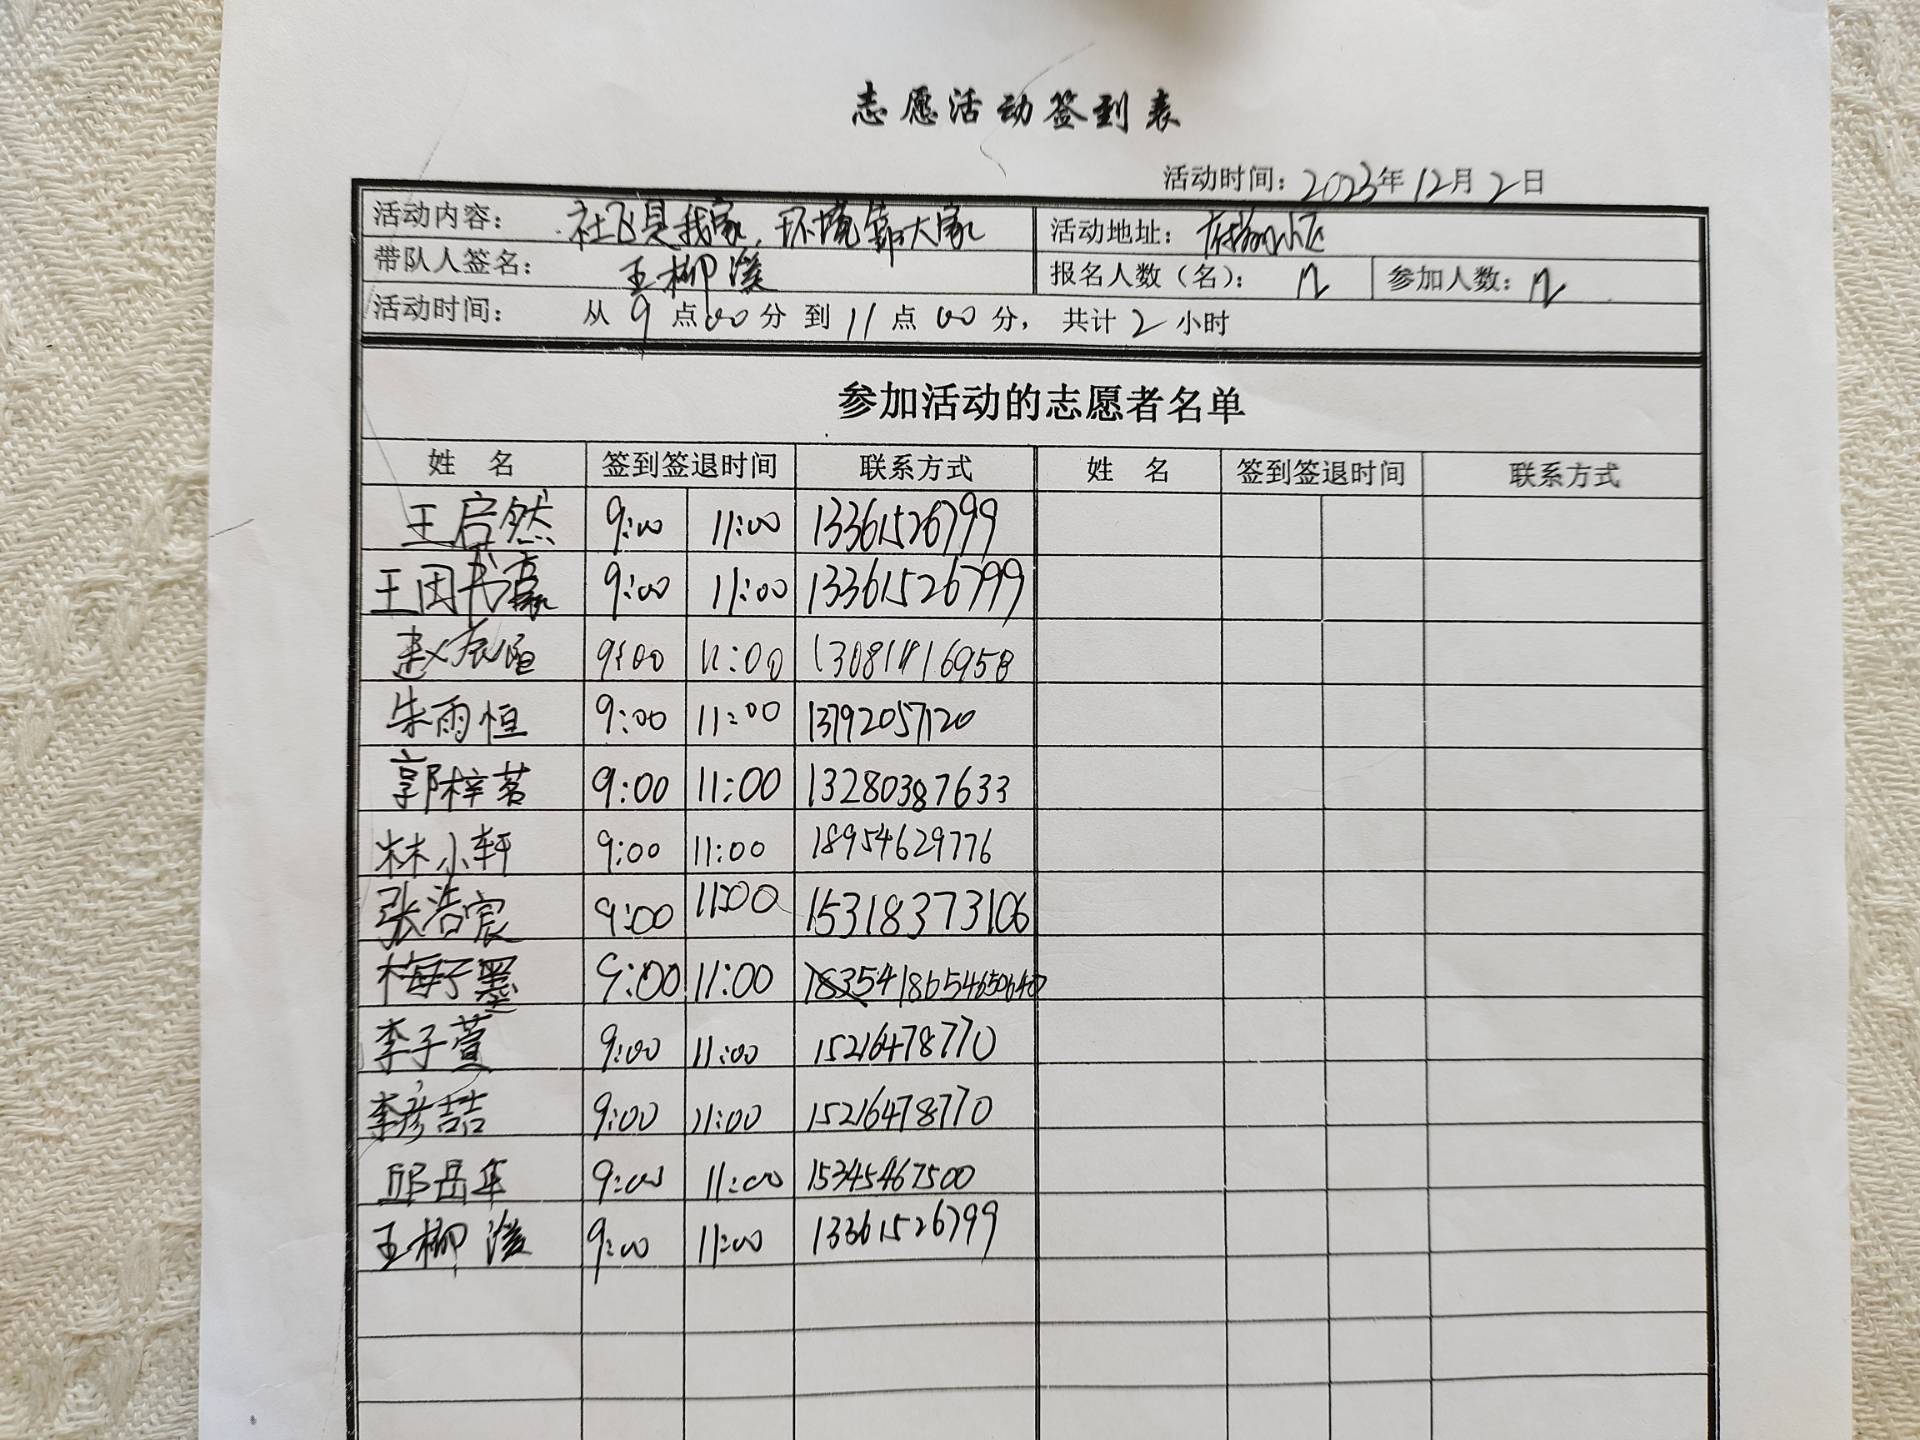 志愿活动签到表
活动时间：2023年12月2日
活动内容：社区是我家，环境靠大家 活动地址：小区
带队人签名：王柳溪 报名人数（名）：12 参加人数：12
活动时间：从9点00分到11点00分，共计2小时
参加活动的志愿者名单
姓 名 签到签退时间 联系方式 姓 名 签到签退时间 联系方式
王启然 9:00 11:00 13361526799
王田书豪 9:00 11:00 13361526799
赵辰恒 9:00 11:00
朱雨恒 9:00 11:00 13792057120
郭梓茗 9:00 11:00 13280387633
林小轩 9:00 11:00 18954629776
张浩宸 9:00 11:00 15318373106
梅子墨 9:00 11:00
李子萱 9:00 11:00 15216478770
李彦喆 9:00 11:00 15216478770
邱岳年 9:00 11:00 15345467500
王柳溪 9:00 11:00 13361526799